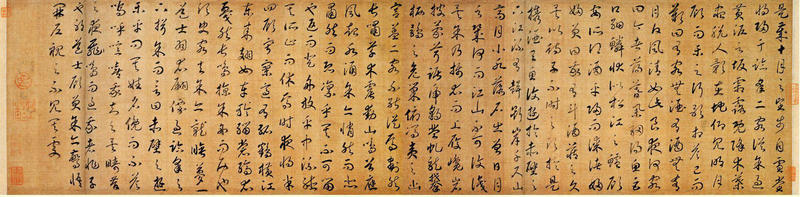 是歲十月之望步自雪堂
將歸于臨皋二客從予過
黃泥之坂霜露既降木葉
盡脫人影在地仰見明月
顧而樂之行歌相答已而
歎曰有客無酒有酒無肴
月白風清如此良夜何客
曰今者薄暮舉網得魚巨
口細鱗狀似松江之鱸顧
安所得酒乎歸而謀諸婦
婦曰我有斗酒藏之久
矣以待子不時之須於是
攜酒與魚復遊於赤壁之
下江流有聲斷岸千尺山
高月小水落石出曾日月
之幾何而江山不可復識
矣予乃攝衣而上履巉岩
披蒙茸踞虎豹登虬龍攀
栖鶻之危巢俯馮夷之幽
宮蓋二客不能從焉劃然
長嘯草木震動山鳴谷應
風起水涌予亦悄然而悲
肅然而恐凜乎其不可留
也反而登舟放乎中流聽
其所止而休焉時夜將半
四顧寂寥適有孤鶴橫江
東來翅如車輪玄裳縞衣
戛然長鳴掠予舟而西也
須臾客去予亦就睡夢一
道士羽衣蹁躚過臨皋之
下揖予而言曰赤壁之遊
樂乎問其姓名俛而不答
嗚呼噫嘻我知之矣疇昔
之夜飛鳴而過我者非子
也耶道士顧笑予亦驚悟
開戶視之不見其處